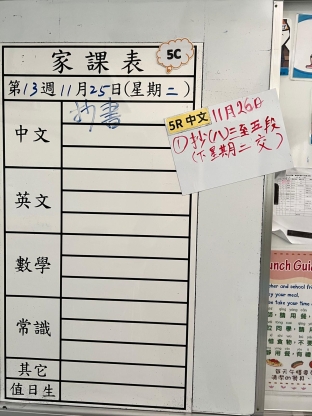 家課表
5C
第13週11月25日(星期二)
中文
抄書
英文
數學
常識
其它
值日生
5R 中文 11月26日
①抄(八)二至五段
(下星期二交)
unch Gui